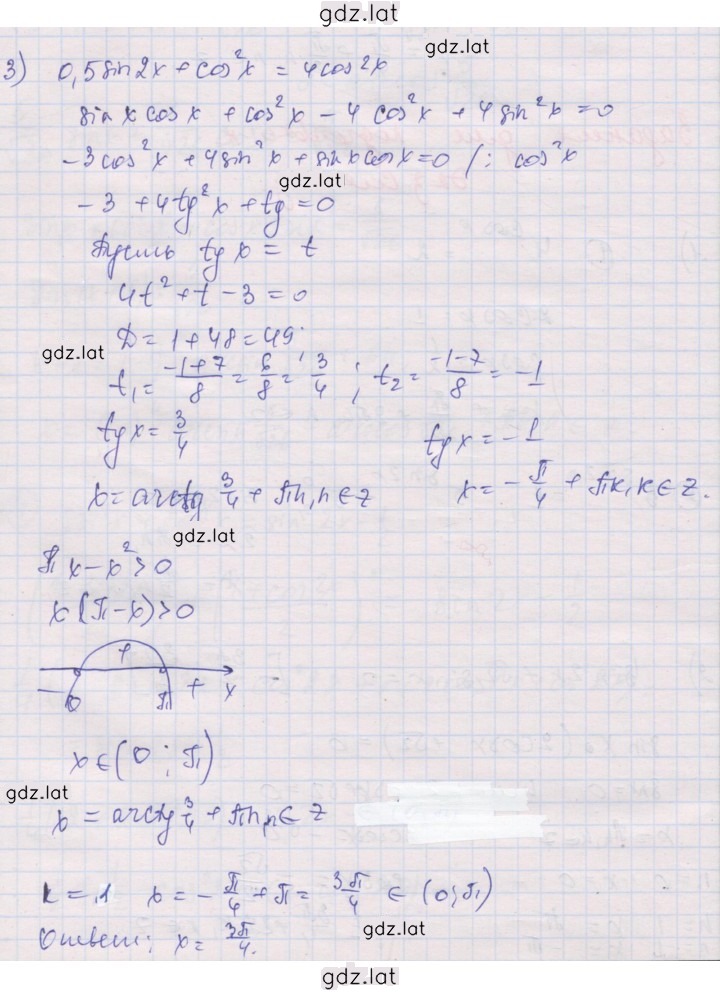 gdz.lat
gdz.lat
3) 0,5 sin 2x + cos²x = 4cos2x
sin x cos x + cos²x - 4 cos²x + 4 sin²x = 0
-3cos²x + 4sin²x + sin x cos x = 0 /: cos²x
gdz.lat
-3 + 4tg²x + tg = 0
Пусть tg x = t
4t² + t - 3 = 0
Д = 1 + 48 = 49;
gdz.lat
t₁ = (-1+7)/8 = 6/8 = 3/4 ; t₂ = (-1-7)/8 = -1
tg x = 3/4 tg x = -1
x = arctg 3/4 + πn, n ∈ z x = -π/4 + πk, k ∈ z.
gdz.lat
πx - x² > 0
x(π - x) > 0
+
- 0 π + x
x ∈ (0 ; π)
gdz.lat
x = arctg 3/4 + πn, n ∈ z
k = 1 x = -π/4 + π = 3π/4 ∈ (0; π)
Ответ: x = 3π/4.
gdz.lat
gdz.lat